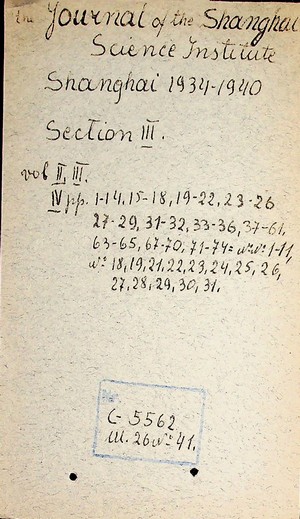 the Journal of the Shanghai
Science Institute
Shanghai 1934-1940
Section III.
vol II, III.
IV pp. 1-14, 15-18, 19-22, 23-26
27-29, 31-32, 33-36, 37-61,
63-65, 67-70, 71-74 = №№ 1-11,
№ 18, 19, 21, 22, 23, 24, 25, 26,
27, 28, 29, 30, 31.
C- 5562
III. 26 № 41.